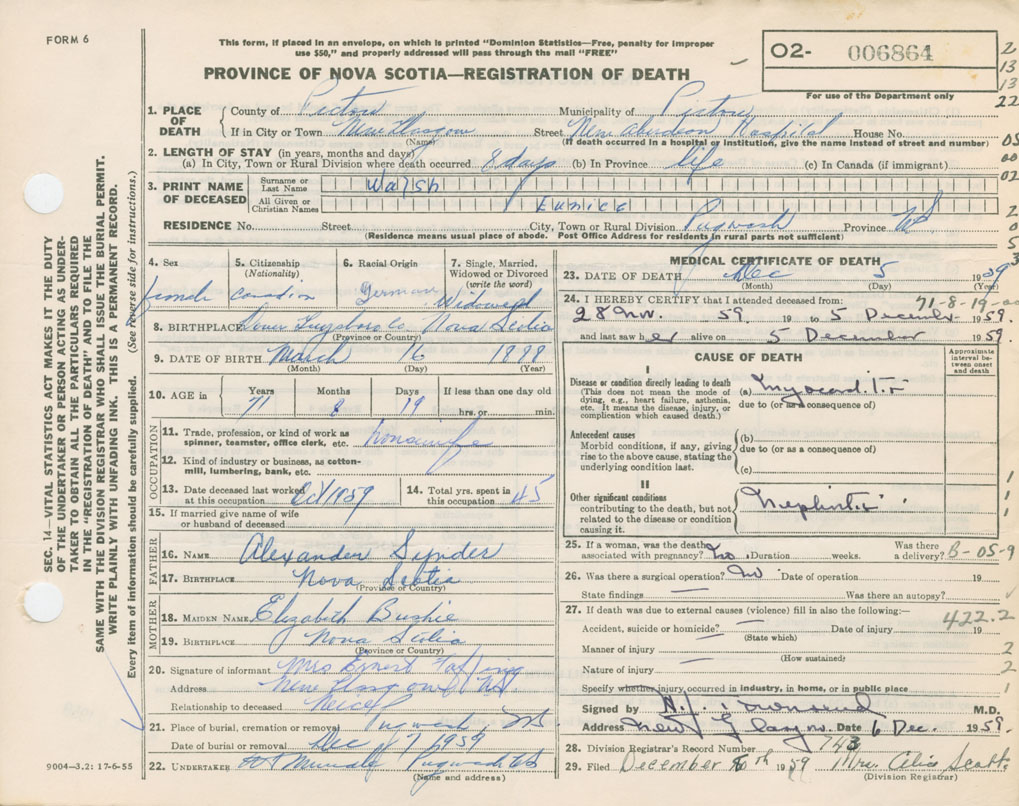 FORM 6
This form, if placed in an envelope, on which is printed "Dominion Statistics—Free, penalty for improper
use $50," and properly addressed will pass through the mail "FREE"
PROVINCE OF NOVA SCOTIA—REGISTRATION OF DEATH
O2- 006864
For use of the Department only
2
13
13
22
05
00
02
2
0
5
3
SEC. 14—VITAL STATISTICS ACT MAKES IT THE DUTY
OF THE UNDERTAKER OR PERSON ACTING AS UNDER-
TAKER TO OBTAIN ALL THE PARTICULARS REQUIRED
IN THE "REGISTRATION OF DEATH" AND TO FILE THE
SAME WITH THE DIVISION REGISTRAR WHO SHALL ISSUE THE BURIAL PERMIT.
WRITE PLAINLY WITH UNFADING INK. THIS IS A PERMANENT RECORD.
Every item of information should be carefully supplied. (See reverse side for instructions.)
1. PLACE OF DEATH
County of Pictou Municipality of Pictou
If in City or Town New Glasgow Street New Aberdeen Hospital House No.
(Name) (If death occurred in a hospital or institution, give the name instead of street and number)
2. LENGTH OF STAY (in years, months and days)
(a) In City, Town or Rural Division where death occurred 8 days (b) In Province life (c) In Canada (if immigrant)
3. PRINT NAME OF DECEASED
Surname or Last Name Walsh
All Given or Christian Names Eunice
RESIDENCE No. Street City, Town or Rural Division Pugwash Province NS
(Residence means usual place of abode. Post Office Address for residents in rural parts not sufficient)
4. Sex female
5. Citizenship (Nationality) Canadian
6. Racial Origin German
7. Single, Married, Widowed or Divorced (write the word) Widowed
8. BIRTHPLACE Guysboro Co. Nova Scotia
(Province or Country)
9. DATE OF BIRTH March 16 1888
(Month) (Day) (Year)
10. AGE in Years 71 Months 8 Days 19 If less than one day old hrs. or min.
OCCUPATION
11. Trade, profession, or kind of work as spinner, teamster, office clerk, etc. housewife
12. Kind of industry or business, as cotton-mill, lumbering, bank, etc.
13. Date deceased last worked at this occupation Oct 1959
14. Total yrs. spent in this occupation 45
15. If married give name of wife or husband of deceased
FATHER
16. NAME Alexander Synder
17. BIRTHPLACE Nova Scotia
(Province or Country)
MOTHER
18. MAIDEN NAME Elizabeth Bushie
19. BIRTHPLACE Nova Scotia
(Province or Country)
20. Signature of informant Mrs Ernest
Address New Glasgow NS.
Relationship to deceased Niece
21. Place of burial, cremation or removal Pugwash NS
Date of burial or removal Dec 7 1959
22. UNDERTAKER Pugwash NS
(Name and address)
9004—3.2: 17-6-55
MEDICAL CERTIFICATE OF DEATH
23. DATE OF DEATH Dec 5 1959
(Month) (Day) (Year)
24. I HEREBY CERTIFY that I attended deceased from: 71-8-19-00
28 Nov. 1959. to 5 December 1959.
and last saw her alive on 5 December 1959
CAUSE OF DEATH
Approximate interval between onset and death
I
Disease or condition directly leading to death
(This does not mean the mode of dying, e.g., heart failure, asthenia, etc. It means the disease, injury, or complication which caused death.)
(a) Myocarditis
due to (or as a consequence of)
Antecedent causes
Morbid conditions, if any, giving rise to the above cause, stating the underlying condition last.
(b)
due to (or as a consequence of)
(c)
II
Other significant conditions
contributing to the death, but not related to the disease or condition causing it.
Nephritis
1
1
25. If a woman, was the death associated with pregnancy? No Duration weeks. Was there a delivery? B-05-9
26. Was there a surgical operation? No Date of operation 19
State findings Was there an autopsy?
27. If death was due to external causes (violence) fill in also the following:—
422.2
Accident, suicide or homicide? — Date of injury 19
(State which)
Manner of injury — 2
(How sustained)
Nature of injury — 2
Specify whether injury occurred in industry, in home, or in public place 1
Signed by H.J. Townsend M.D.
Address New Glasgow Date 6 Dec. 1959
28. Division Registrar's Record Number 143
29. Filed December 8th 1959 Mrs. Celia Scott
(Division Registrar)